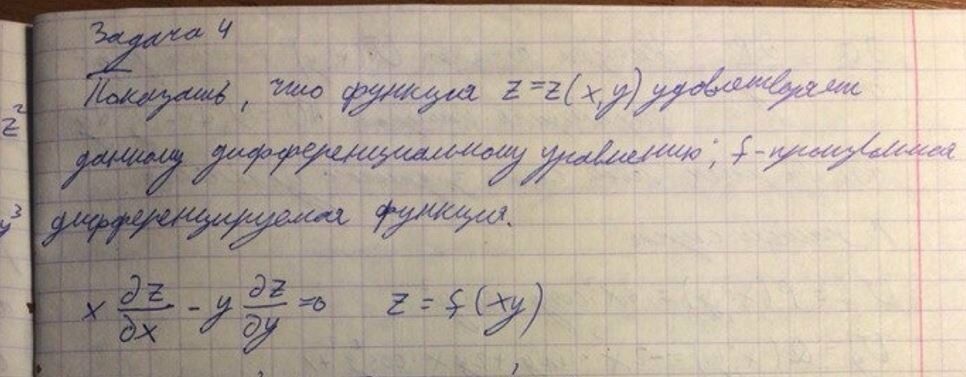 Задача 4
Показать, что функция z = z(x,y) удовлетворяет
z²
данному дифференциальному уравнению; f - произвольная
y³
дифференцируемая функция.
x ∂z/∂x - y ∂z/∂y = 0 z = f(xy)